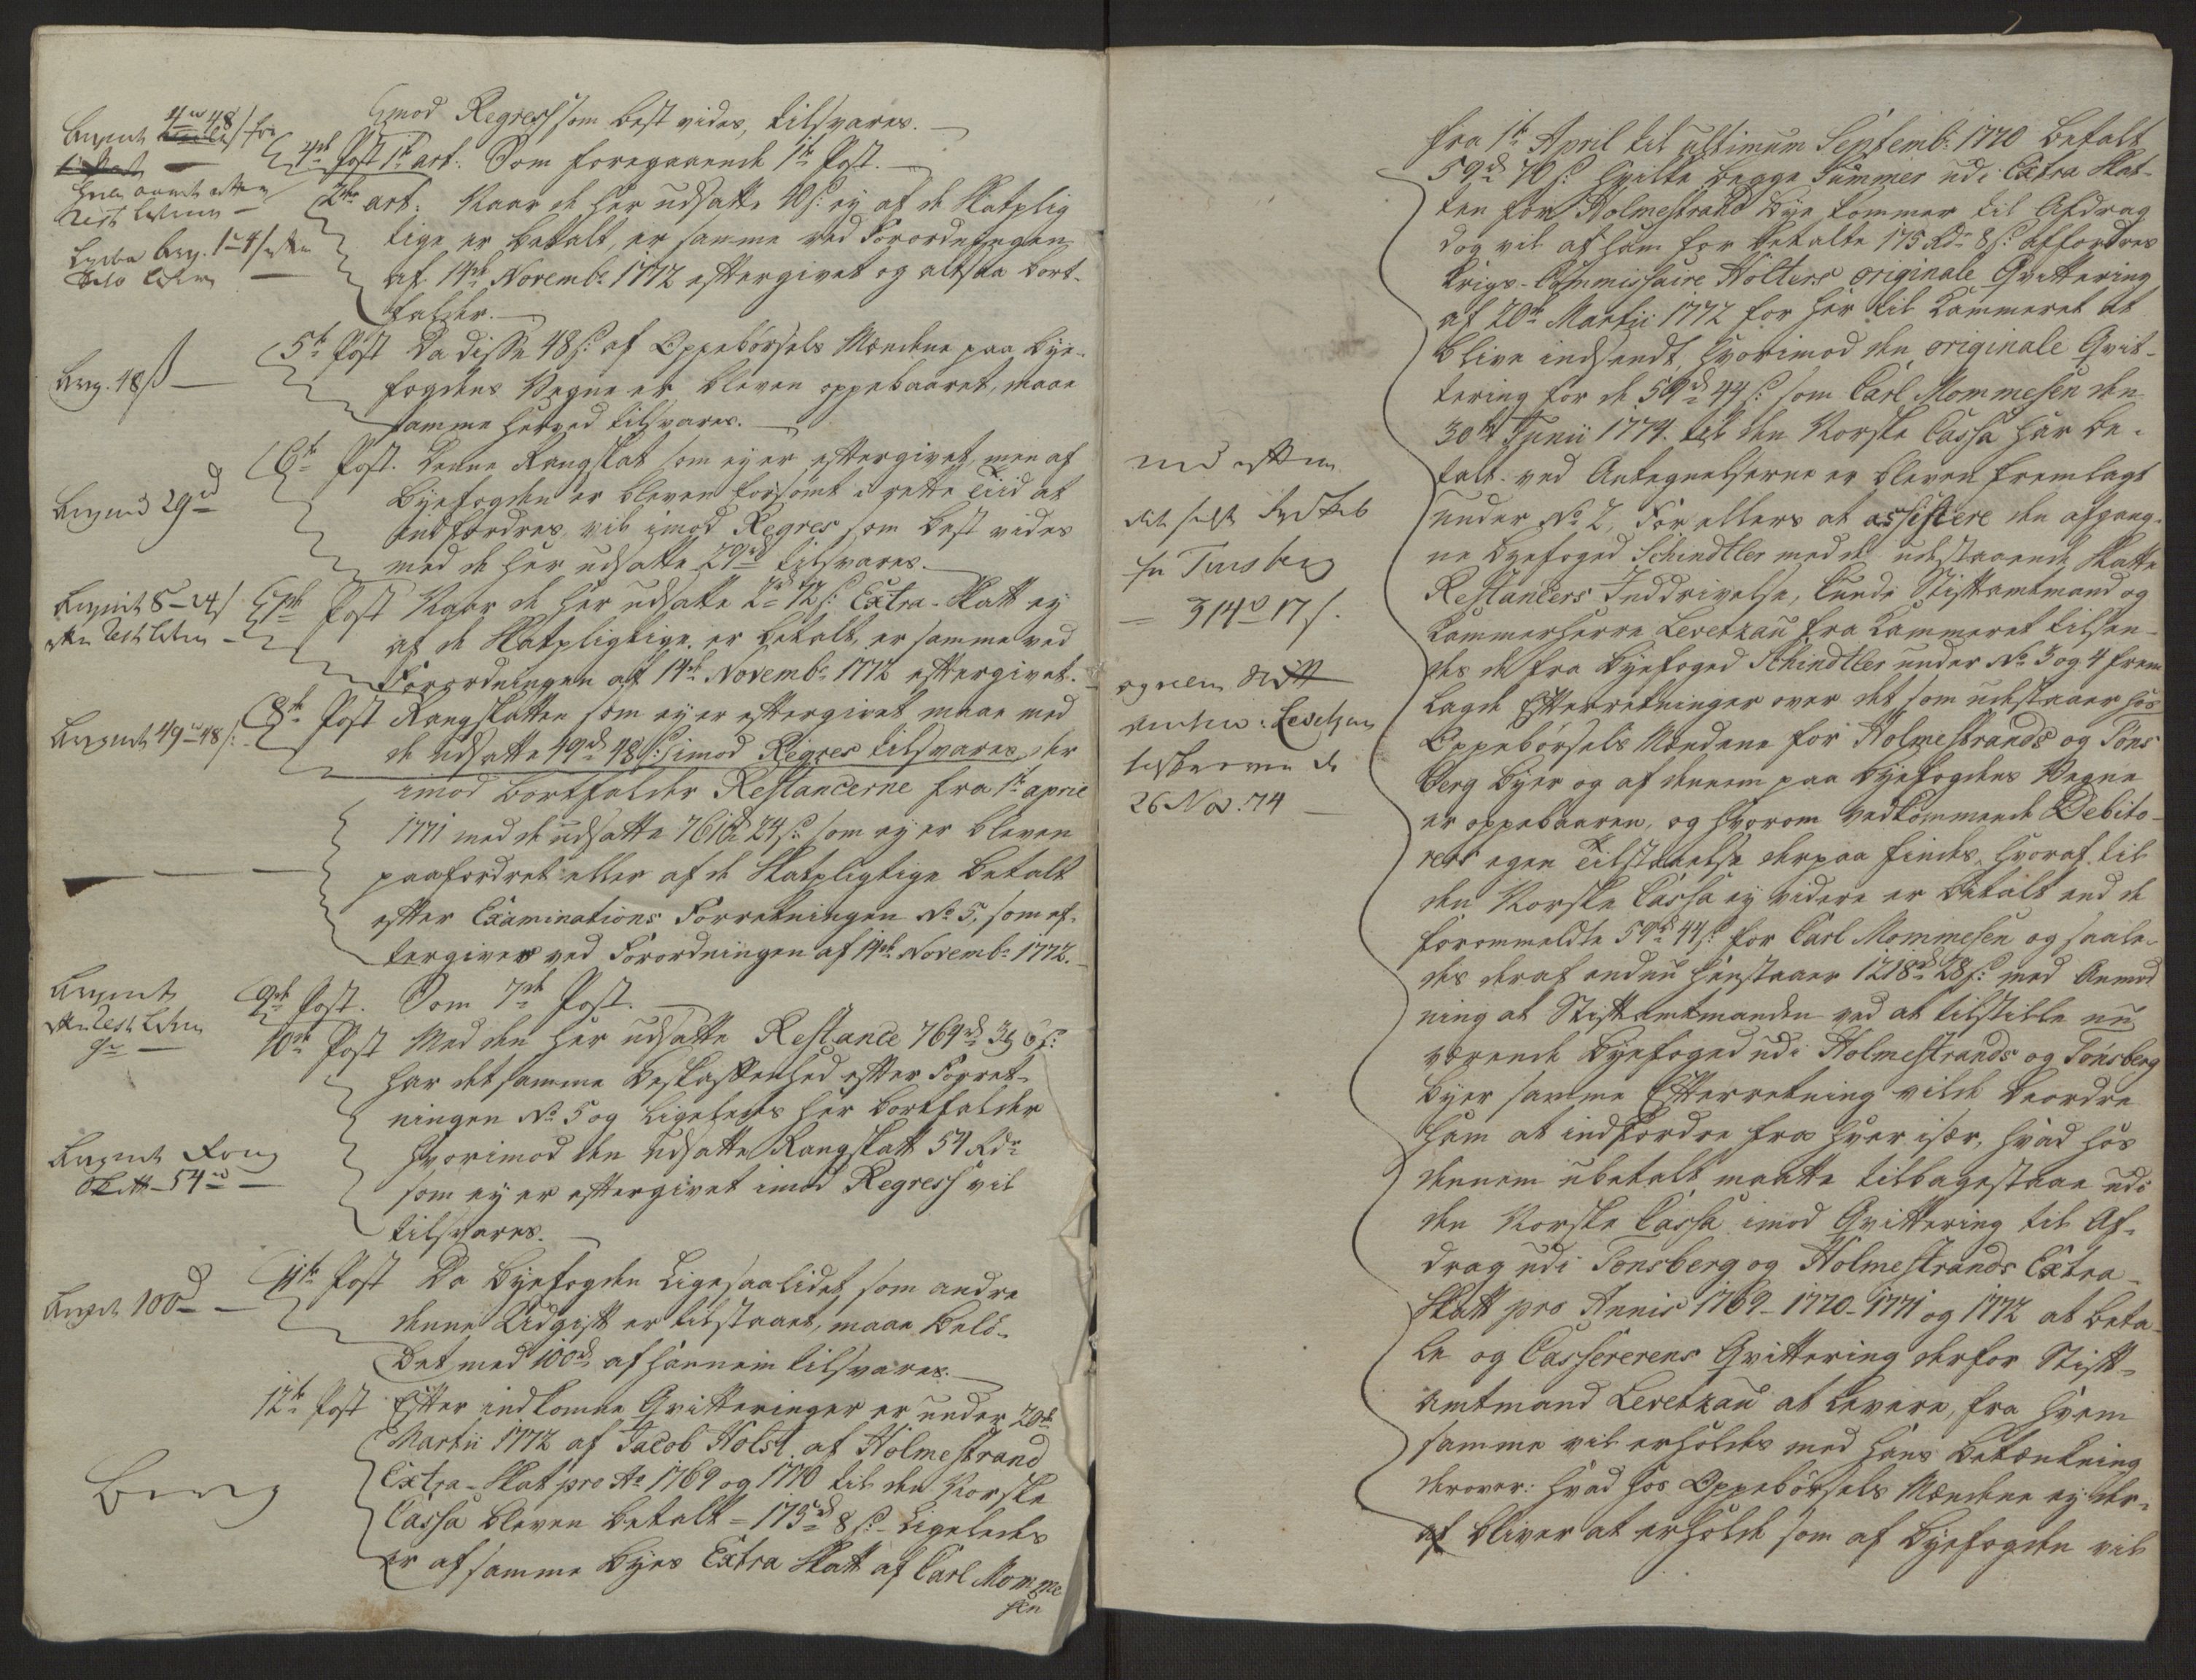 imod Regress som best vides, tilsvares.
4de Post 1te art. Som foregaaende 1te Post.
2den art. Naar de her udsatte 40 s: ey af de Skatplig
tige er betalt, er samme ved Forordningen
af 14de Novembr 1772 eftergivet og altsaa bort-
falder.
5te Post Da disse 48 s: af Oppebørsels Mændene paa Bye-
fogdens Vegne er bleven oppebaaret, maae
samme herved tilsvares.
Arg. 48 ß
6te Post. Denne Rangskat som ey er eftergivet, men af
Byefogden er bleven forsømt i rette Tiid at
indfordres, vil imod Regres som best vides
med de her udsatte 29rd tilsvares.
7de Post Naar de her udsatte 2rd 72 s: Extra-Skatt ey
af de Skatpligtige er betalt, er samme ved
Forordningen af 14de Novembr 1772 eftergivet.
8de Post Rangskatten som ey er eftergivet maae med
de udsatte 49rd 48 s: imod Regres tilsvares, der
imod bortfalder Restancerne fra 1te april
1771 med de udsatte 761rd 24 s: som ey er bleven
paafordret eller af de Skatpligtige betalt
efter Examinations Forretningen No 5, som ef-
tergives ved Forordningen af 14de Novembr 1772.
9de Post. Som 7de Post.
10de Post Med den her udsatte Restance 764rd
har det samme Beskaffenhed efter Forret-
ningen No 5 og ligeledes her bortfalder
hvorimod den udsatte Rangskatt 54 Rdr
som ey er eftergivet imod Regress vil
tilsvares.
54rd
11te Post Da Byefogden ligesaalidet som andre
denne Udgift er tilstaaet, maae Belø-
bet med 100rd af hannem tilsvares.
100rd
12te Post Efter indkomne Qvitteringer er under 20de
Martii 1772 af Jacob Holst af Holmestrand
Extra-Skat pro Ao 1769 og 1770 til den Norske
Cassa bleven betalt = 175rd 8 s: - Ligeledes
er af samme Byes Extra Skatt af Carl Momme
sen
fra 1te April til ultimum Septembr 1770 betalt
59rd 70 s: hvilke begge Summer udi Extra Skat-
ten for Holmestrand Bye kommer til Afdrag
dog vil af ham for betalte 175 Rdr 8 s: affordres
Krigs-Commissaire Holters originale Qvittering
af 20de Martii 1772 for her til Kammeret at
blive indsendt, hvorimod den originale Qvit-
tering for de 59rd 44 s: som Carl Mommesen den
30te Junii 1774. til den Norske Cassa har be-
talt ved Antegnelserne er bleven fremlagt
under No 2, For ellers at assistere den afgang-
ne Byefoged Schindtler med de udestaaende Skatte
Restancers Inddrivelse, kunde Stiftamtmand og
Kammerherre Levetzau fra Kammeret tilsen-
des de fra Byefoged Schindtler under No 3 og 4 frem
lagde Efterretninger over det som udestaaer hos
Oppebørsels Mændene for Holmestrands og Tøns
berg Byer og af dennem paa Byefogdens Vegne
er oppebaaren, og hvorom vedkommende Debito-
rers egen Tilstaaelse derpaa findes, hvoraf til
den Norske Cassa ey videre er betalt end de
forommeldte 59rd 44 s: for Carl Mommesen og saale-
des deraf endnu henstaaer 1218rd 28 s: med Anmod
ning at Stiftamtmanden ved at tilstille nu
værende Byefoged udi Holmestrands og Tønsberg
Byer samme Efterretning vilde beordre
ham at indfordre fra hver især, hvad hos
dennem ubetalt maatte tilbagestaae udi
den Norske Cassa imod Qvittering til Af-
drag udi Tønsberg og Holmestrands Extra-
Skatt pro Annis 1769-1770-1771 og 1772 at beta-
le og Cassererens Qvittering derfor Stift-
amtmand Levetzau at levere, fra hvem
samme vil erholdes med hans Betænkning
derover: hvad hos Oppebørsels Mændene ey der-
af bliver at erholde som af Byefogden vil
314rd 17 s.
26 Nov. 74